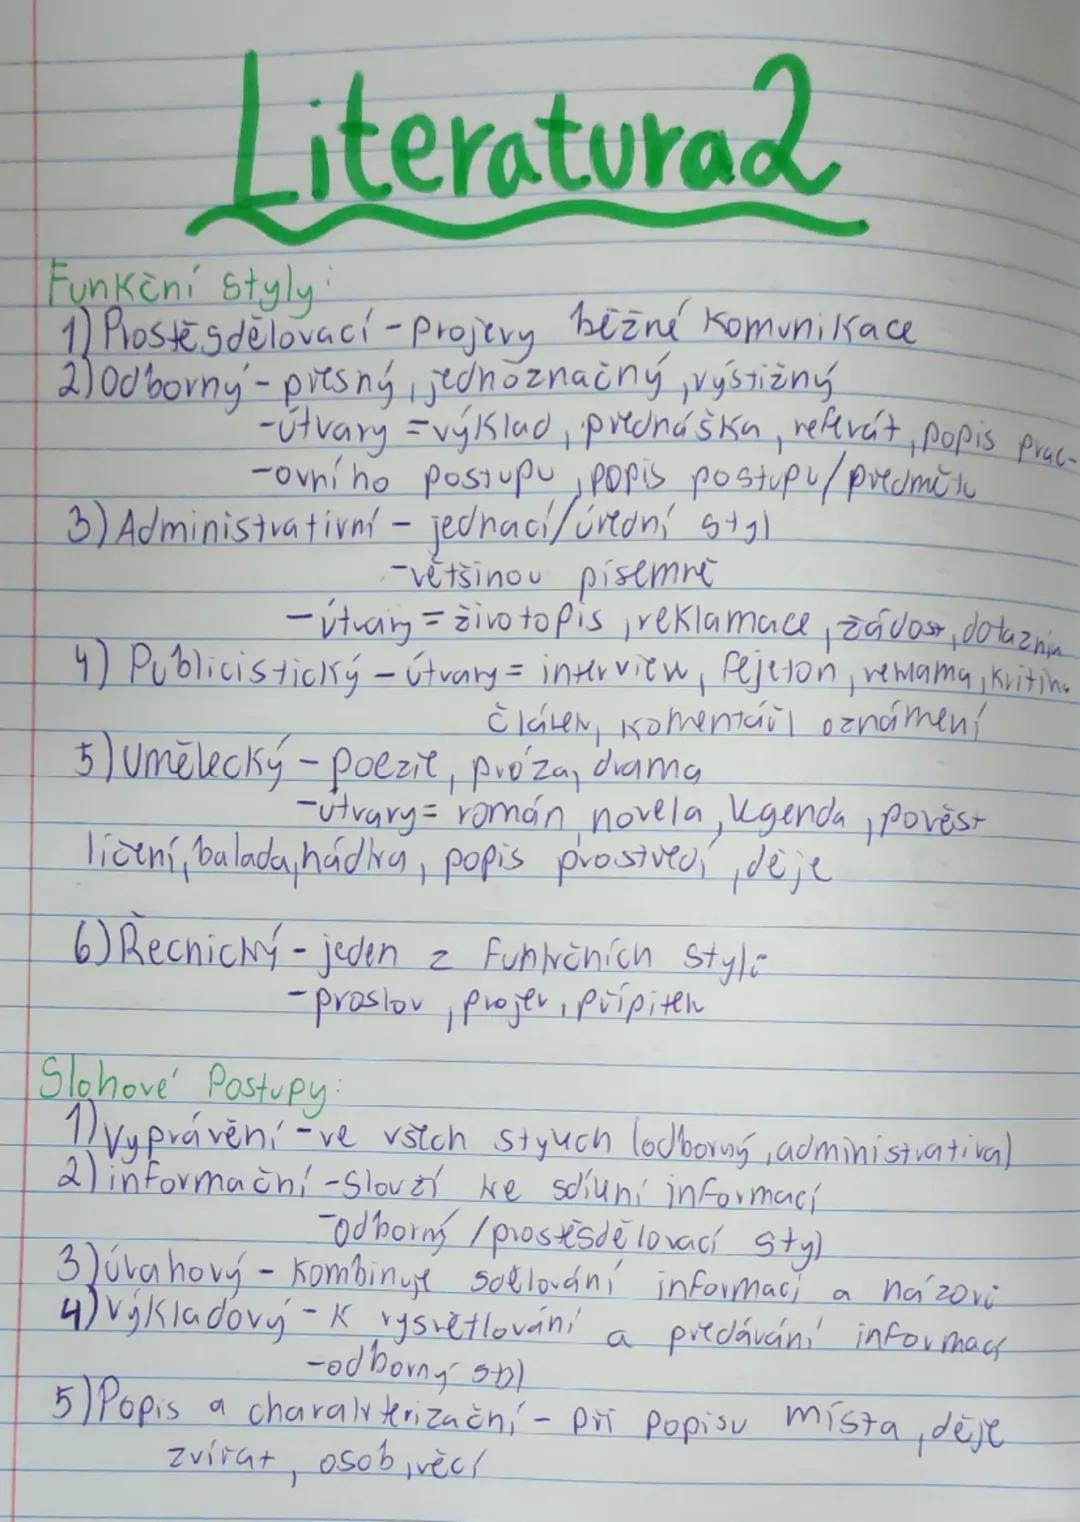 Literatura2
Funkční styly:
1) Prostěsdělovací - projevy běžné komunikace
2) Odborný - přesný, jednoznačný, výstižný
-útvary = výklad, přednáška, referát, popis prac-
-ovního postupu, popis postupu/předmětu
3) Administrativní - jednací/úřední styl
-většinou písemně
-útvary = životopis, reklamace, žádost, dotazník
4) Publicistický - útvary = interview, fejeton, reklama, kritika
článek, komentář, oznámení
5) Umělecký - poezie, próza, drama
-útvary = román, novela, legenda, pověst
líčení, balada, hádka, popis prostředí, děje
6) Řečnický - jeden z funkčních stylů
-proslov, projev, přípitek
Slohové Postupy:
1) Vyprávění - ve všech stylech (odborný, administrativa)
2) informační - slouží ke sdílení informací
-odborný / prostěsdělovací styl
3) úvahový - kombinuje sdělování informací a názorů
4) výkladový - k vysvětlování a předávání informací
-odborný styl
5) Popis a charakterizační - při popisu místa, děje
zvířat, osob, věcí